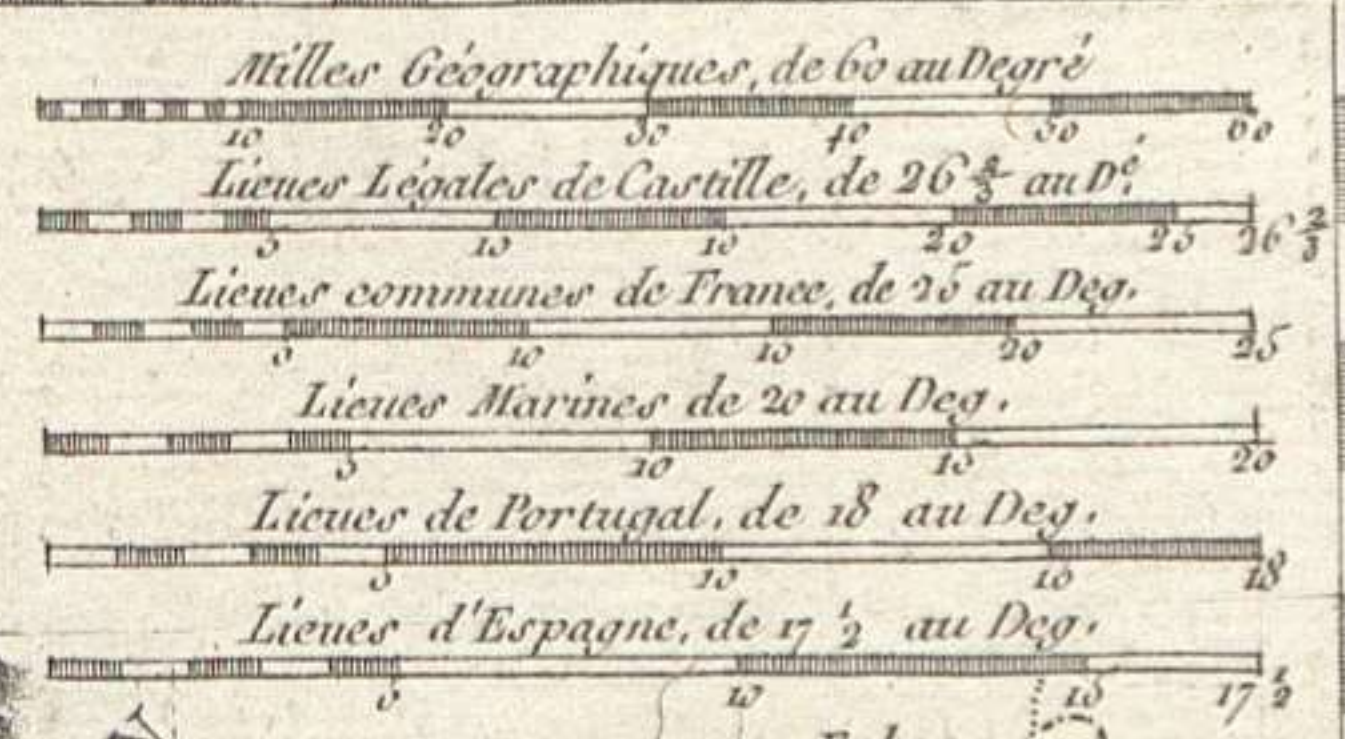 Milles Géographiques, de 60 au Degré
10 20 30 40 50 60
Lieues Légales de Castille, de 26 2/3 au D.é
5 10 15 20 25 26 2/3
Lieues communes de France, de 25 au Deg.
5 10 15 20 25
Lieues Marines de 20 au Deg.
5 10 15 20
Lieues de Portugal, de 18 au Deg.
5 10 15 18
Lieues d'Espagne, de 17 1/2 au Deg.
5 10 15 17 1/2